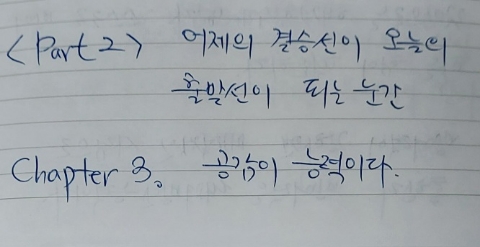 <Part 2> 어제의 결승선이 오늘의
출발선이 되는 순간
Chapter 3. 공감이 능력이다.